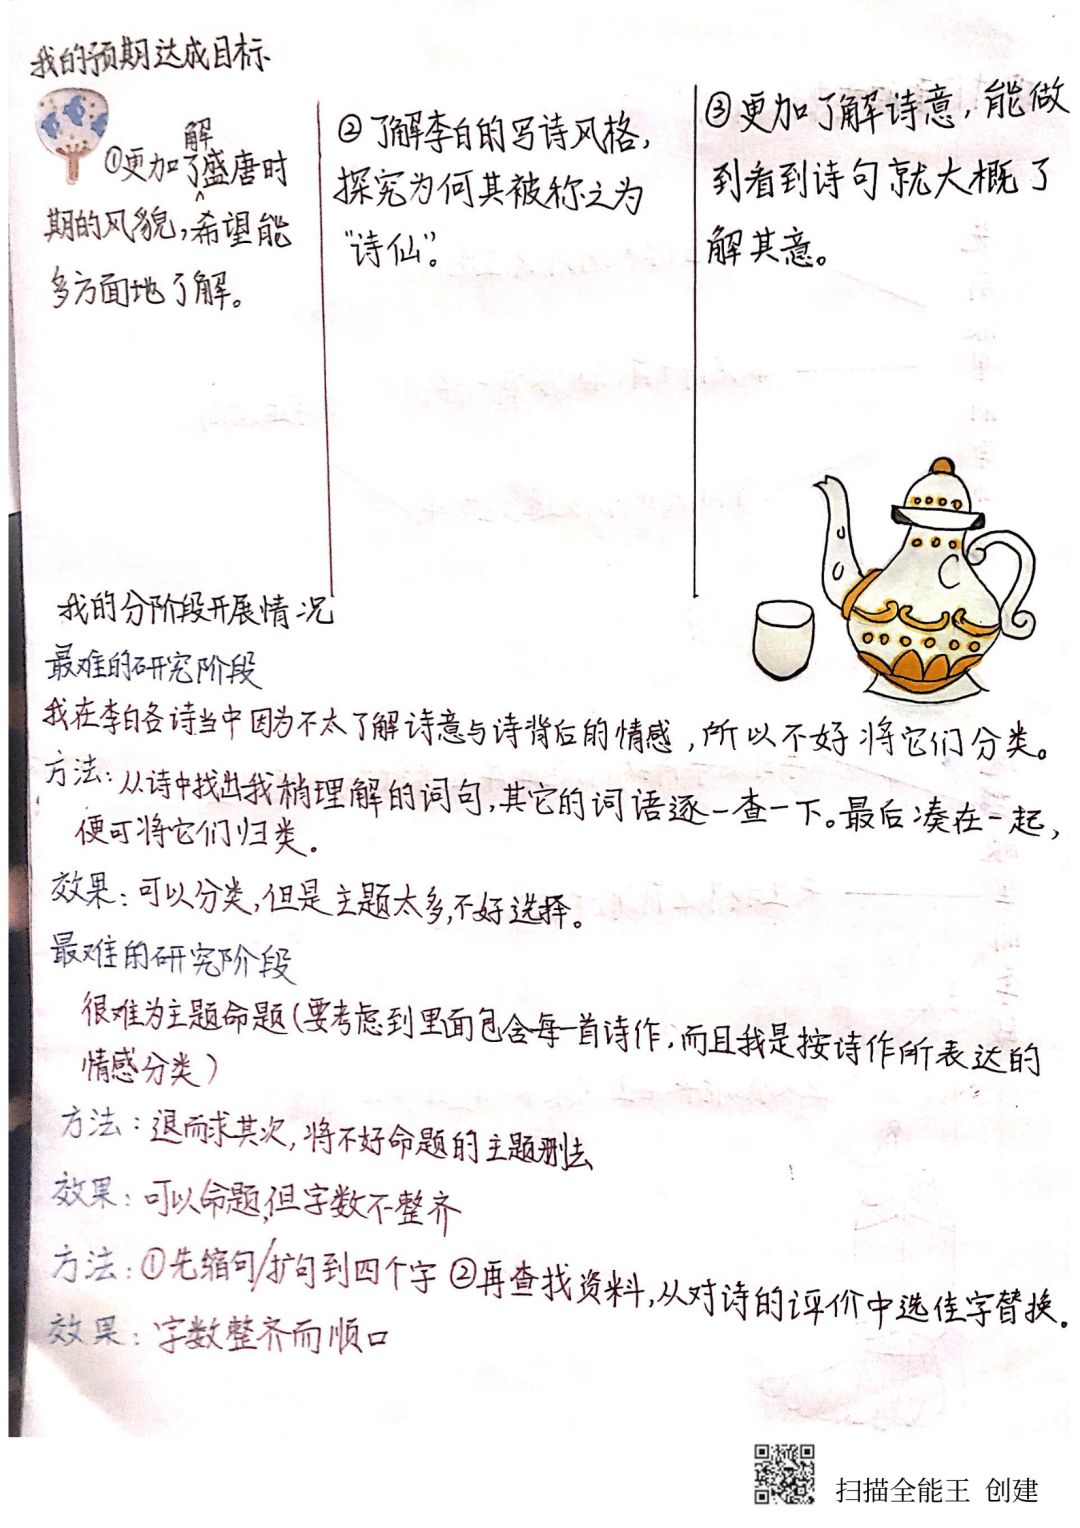 我的预期达成目标
①更加了解盛唐时
期的风貌,希望能
多方面地了解。
②了解李白的写诗风格,
探究为何其被称之为
“诗仙”。
③更加了解诗意,能做
到看到诗句就大概了
解其意。
我的分阶段开展情况
最难的研究阶段
我在李白各诗当中因为不太了解诗意与诗背后的情感,所以不好将它们分类。
方法:从诗中找出我稍理解的词句,其它的词语逐一查一下。最后凑在一起,
便可将它们归类.
效果:可以分类,但是主题太多,不好选择。
最难的研究阶段
很难为主题命题(要考虑到里面包含每一首诗作,而且我是按诗作所表达的
情感分类)
方法:退而求其次,将不好命题的主题删去
效果:可以命题,但字数不整齐
方法:①先缩句/扩句到四个字 ②再查找资料,从对诗的评价中选佳字替换.
效果:字数整齐而顺口
扫描全能王 创建